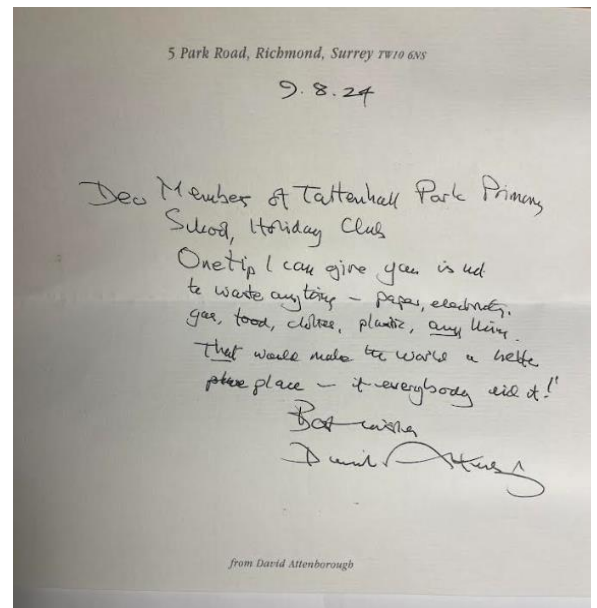 5 Park Road, Richmond, Surrey TW10 6NS
9.8.24
Dear Member of Tattenhall Park Primary
School, Holiday Club
One tip I can give you is not
to waste anything – paper, electricity,
gas, food, clothes, plastic, anything.
That would make the world a better
place – if everybody did it!
Best wishes
David Attenborough
from David Attenborough